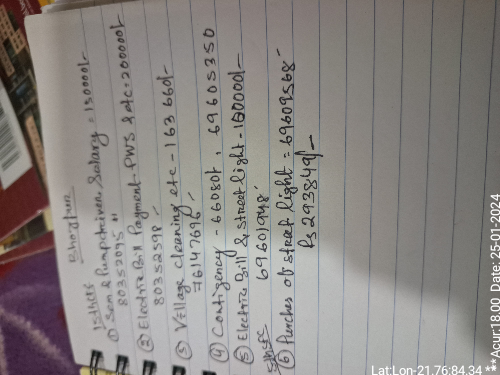 Bhogtum
15thSFC
① Sem & Pumpdriver Salary = 150000/-
80352095 "
② Electric Bill Payment - PWS & etc = 200000/-
80352598 -
③ Village cleaning etc - 163660/-
76147696 -
④ Contigency - 66080/- , 69605350
⑤ Electric Bill & Street light - 100000/-
5thSFC 69601948
⑥ Purches of street light = 69609568 -
Rs 293849/-
Lat:Lon-21.76:84.34 **Acur:18.00 Date: 25-01-2024